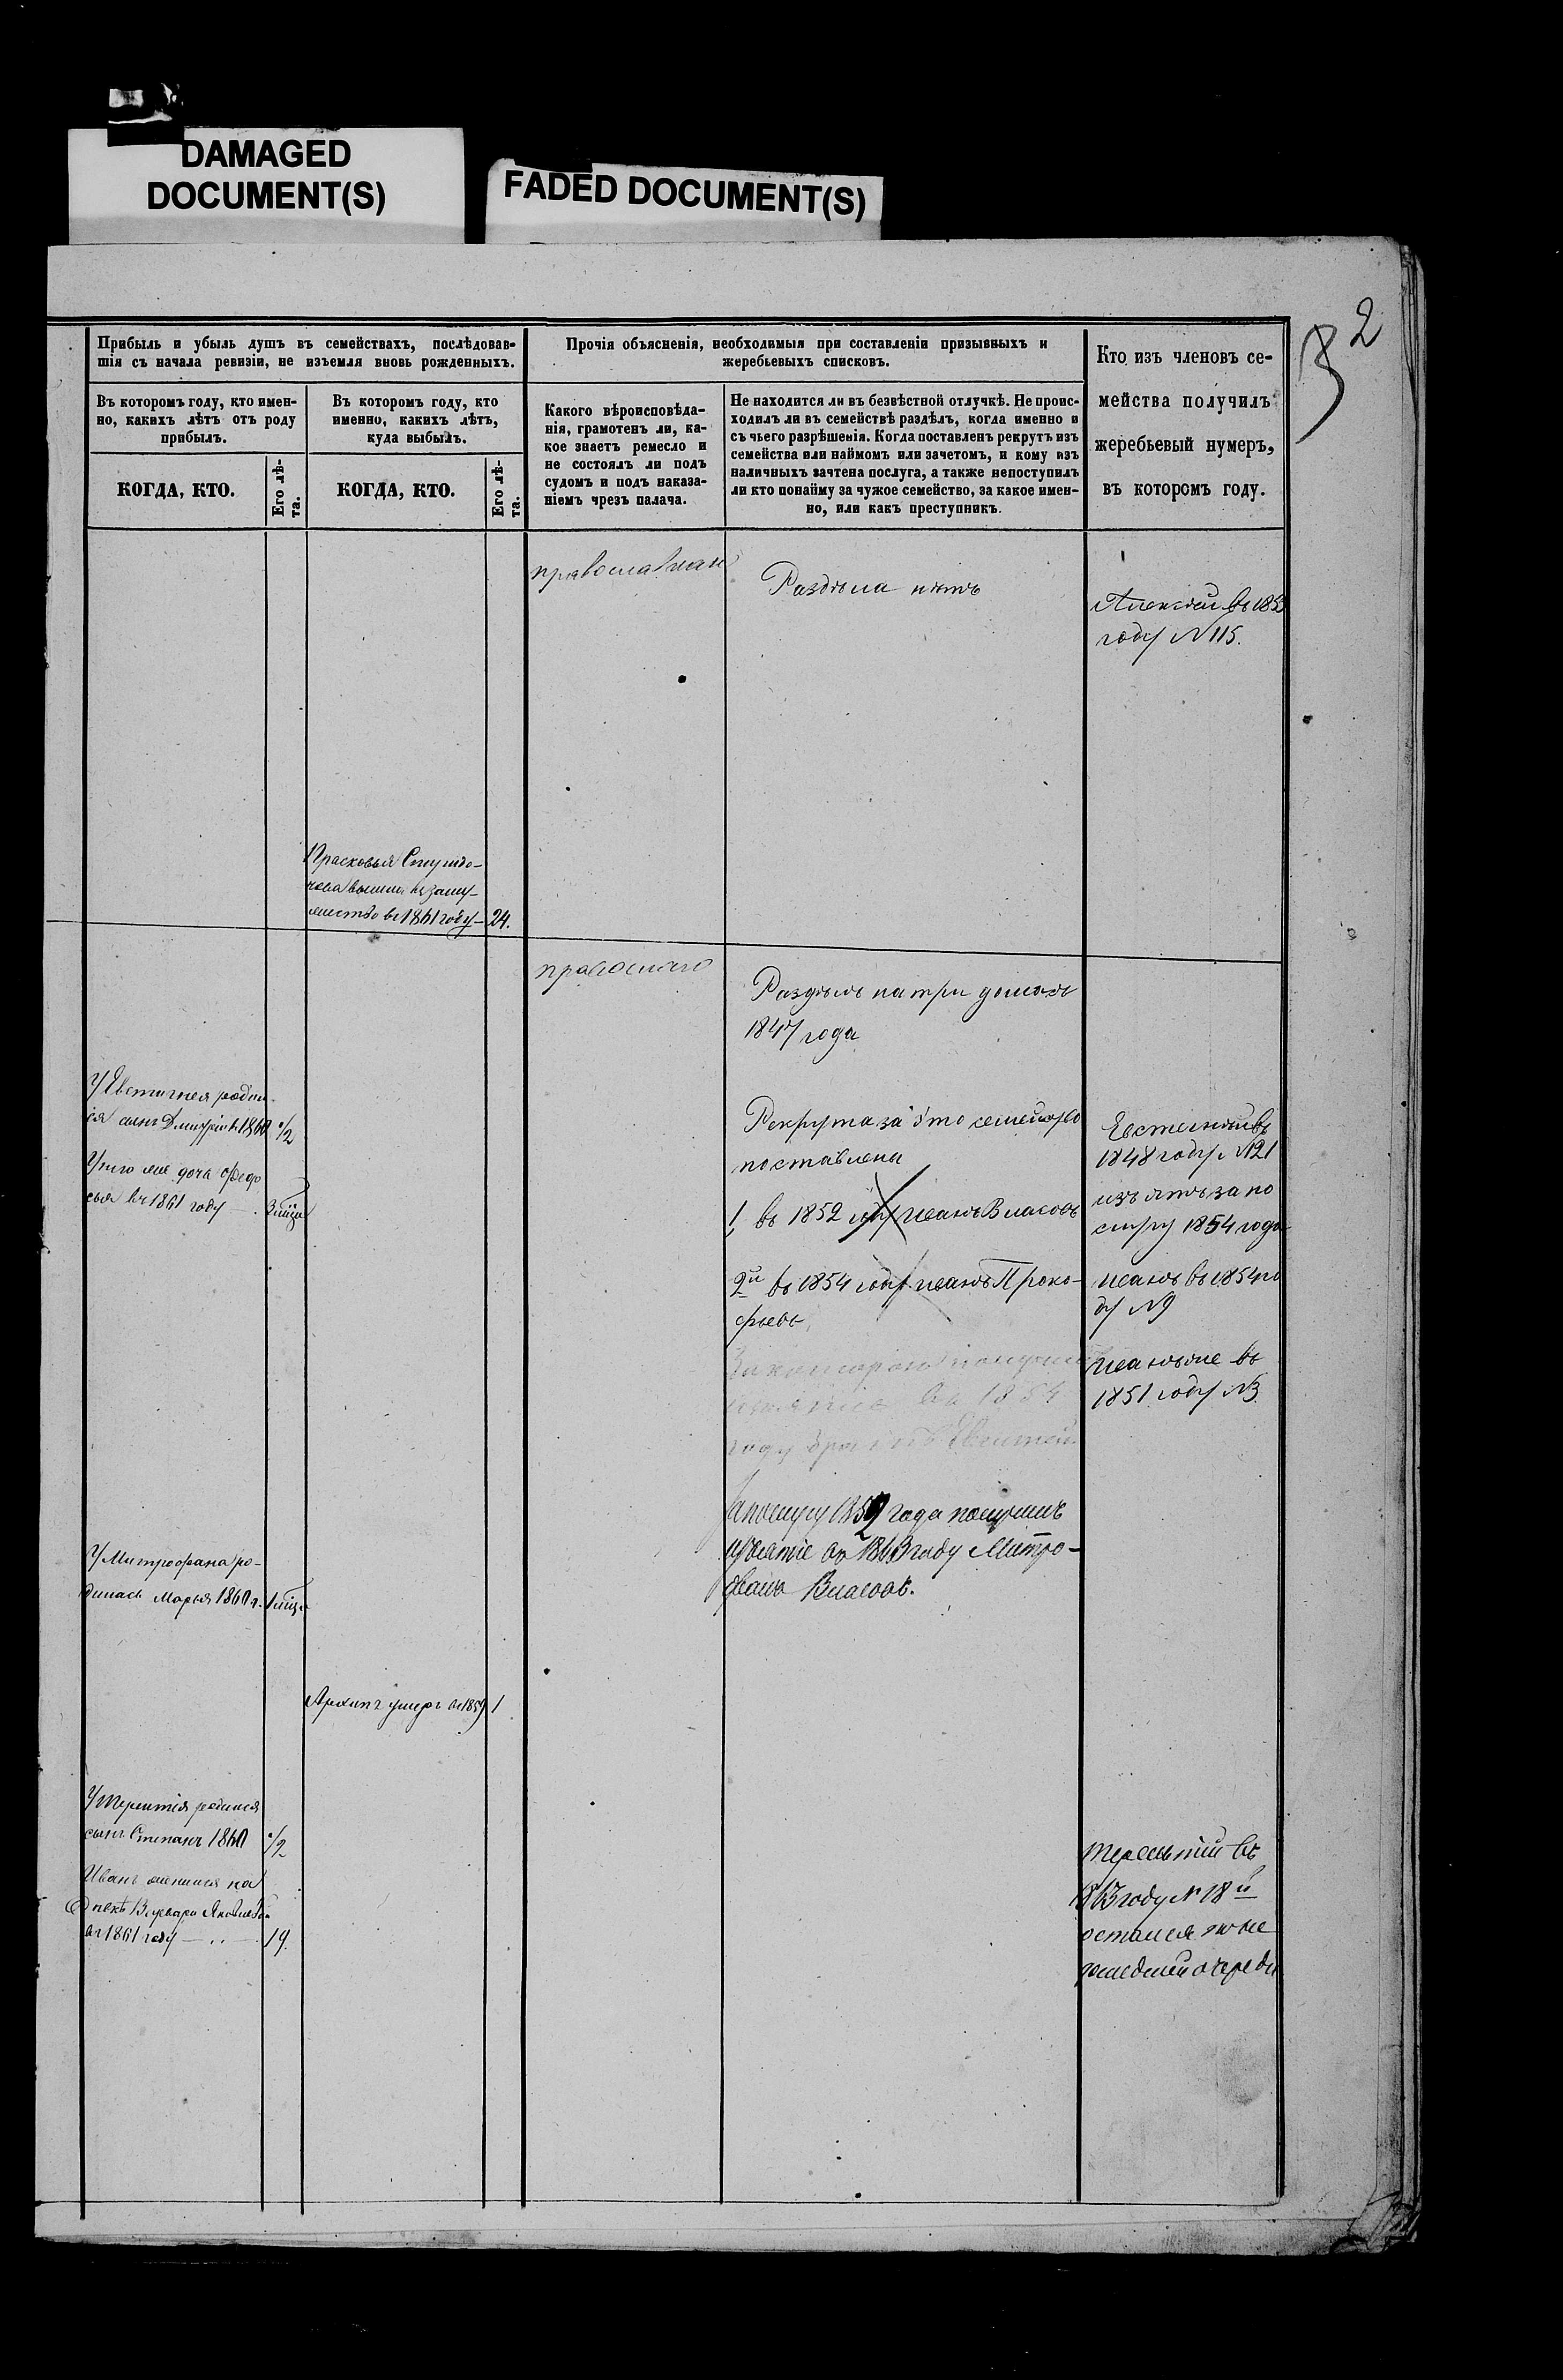 DAMAGED
DOCUMENT(S)
FADED DOCUMENT(S)
2
3
Прибыль и убыль душъ въ семействахъ, послѣдовав-
шія съ начала ревизіи, не изъемля вновь рожденныхъ.
Прочія объясненія, необходимыя при составленіи призывныхъ и
жеребьевыхъ списковъ.
Кто изъ членовъ се-
мейства получилъ
жеребьевый нумеръ,
въ которомъ году.
Въ которомъ году, кто имен-
но, какихъ лѣтъ отъ роду
прибылъ.
Въ которомъ году, кто
именно, какихъ лѣтъ,
куда выбылъ.
Какого вѣроисповѣда-
нія, грамотенъ ли, ка-
кое знаетъ ремесло и
не состоялъ ли подъ
судомъ и подъ наказа-
ніемъ чрезъ палача.
Не находится ли въ безвѣстной отлучкѣ. Не проис-
ходилъ ли въ семействѣ раздѣлъ, когда именно и
съ чьего разрѣшенія. Когда поставленъ рекрутъ изъ
семейства или наймомъ или зачетомъ, и кому изъ
наличныхъ зачтена послуга, а также непоступилъ
ли кто понайму за чужое семейство, за какое имен-
но, или какъ преступникъ.
КОГДА, КТО.
Его лѣ-
та.
КОГДА, КТО.
Его лѣ-
та.
православнаго
Раздѣла нѣтъ
Алексѣй въ 1853
году N 115.
Прасковья
вышла въ заму-
жество въ 1861 году — 24.
православнаго
Раздѣлъ на три дома съ
1847 года
У Евстигнея родил-
ся сынъ Дмитрій въ 1860 1/2
У него же дочь Федо
сья въ 1861 году — 3 мѣца
Рекрута за это семейство
поставлены
1, въ 1852 году Иванъ Власовъ
2й въ 1854 году Иванъ Проко-
фьевъ
За которого получилъ
изъятіе въ 1854
году братъ Евстигней
За послугу 1859 года получилъ
изъятіе въ 1863 году Митро-
фанъ Власовъ.
Евстигней въ
1848 году N 121
изъятъ за по
слугу 1854 года
Иванъ въ 1854 го
ду N 9
Иванъ же въ
1851 году N 3
У Митрофана ро-
дилась Марья 1860 г. 1 мѣца
Архипъ умеръ въ 1859 1
У Терентія родился
сынъ Степанъ 1860 1/2
Иванъ женился на
Варвара Яковлева
въ 1861 году — 19.
Терентій въ
1863 году N 18й
остался по не
дошедшей очереди